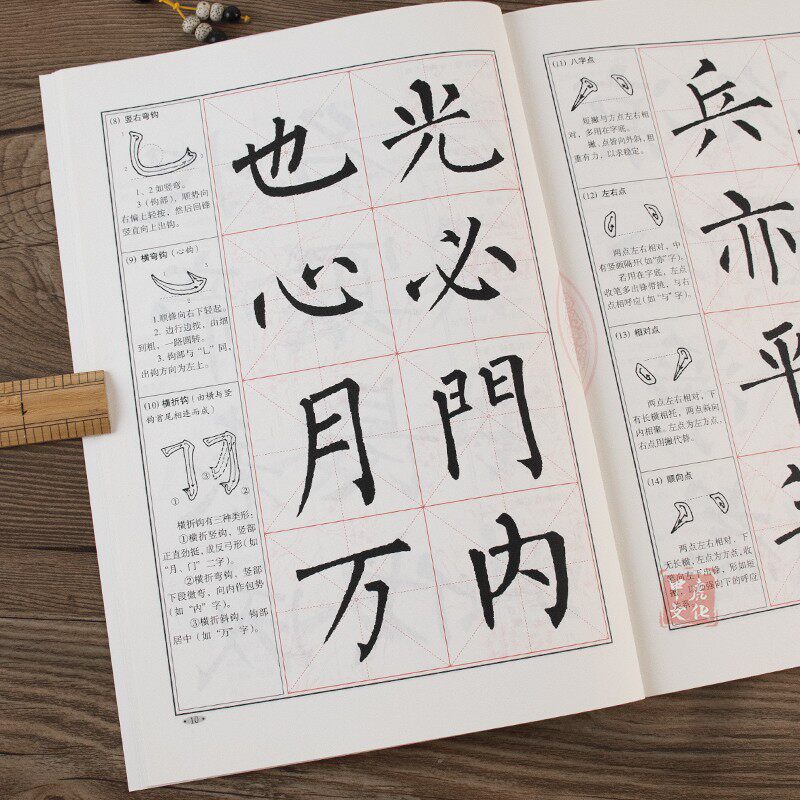 (8) 竖右弯钩
1、2 如竖弯。
3（钩部），顺势向
右偏上轻按，然后回锋
竖直向上出钩。
(9) 横弯钩（心钩）
1.顺锋向右下轻起。
2. 边行边按，由细
到粗，一路圆转。
3. 钩部与“乚”同，
出钩方向为左上。
(10) 横折钩（由横与竖
钩首尾相连而成）
① ③ ②
横折钩有三种类形：
①横折竖钩，竖部
正直劲挺，或反弓形（如
“月、门”二字）。
②横折弯钩，竖部
下段微弯，向内作包势
（如“内”字）。
③横折斜钩，钩部
居中（如“万”字）。
也光
心必
月門
万内
10
(11) 八字点
短撇与方点左右相
对，多用在字底。
撇、点皆向外斜，粗
重有力，以求稳定。
(12) 左右点
两点左右相对，中
有竖画隔开（如“亦”字）。
若用在字底，左点
收笔多出锋带挑，与右
点相呼应（如“与”字）。
(13) 相对点
两点左右相对，下
有长横相托，两点斜向
内相聚。左点为左方点，
右点用撇代替。
(14) 顺向点
两点左右相对，下
无长横，左点为方点，收
下的呼应
兵
亦
平
文化